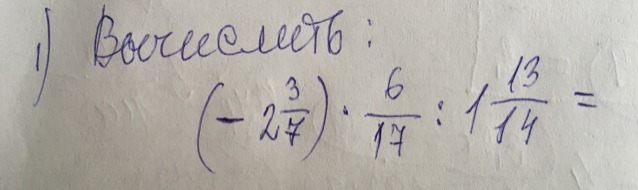 1) Вычислить:
(- 2 3/7) · 6/17 : 1 13/14 =